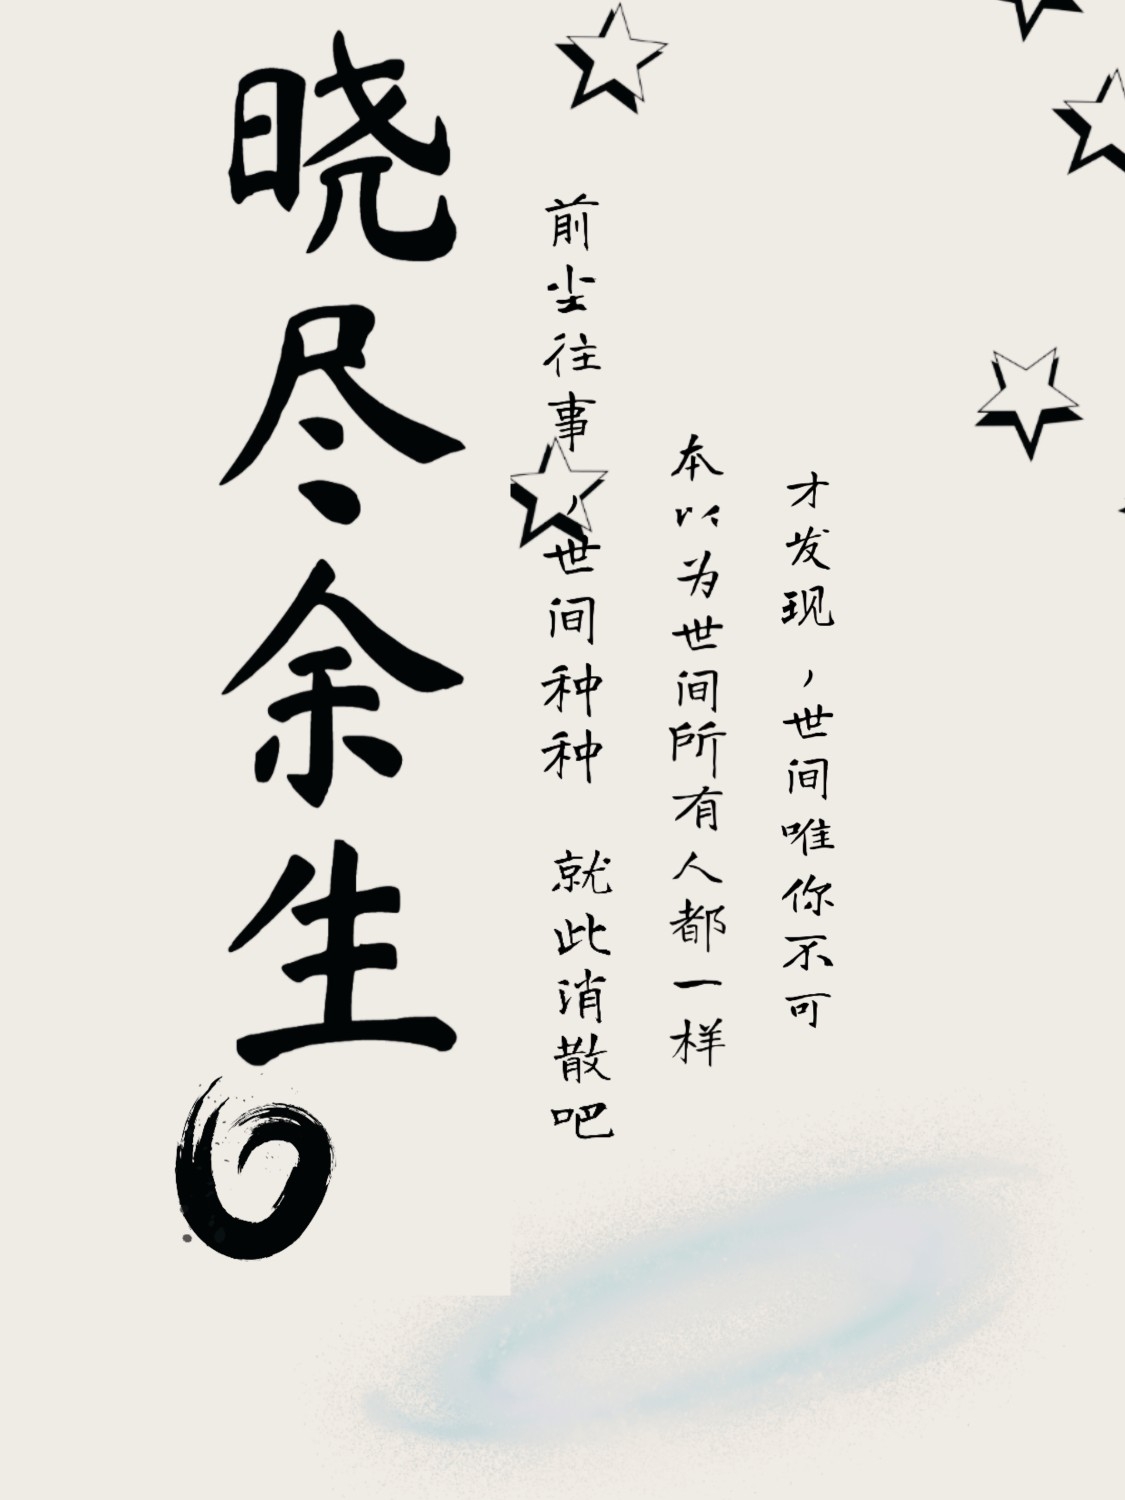 晓尽余生
前尘往事，世间种种 就此消散吧
本以为世间所有人都一样
才发现，世间唯你不可